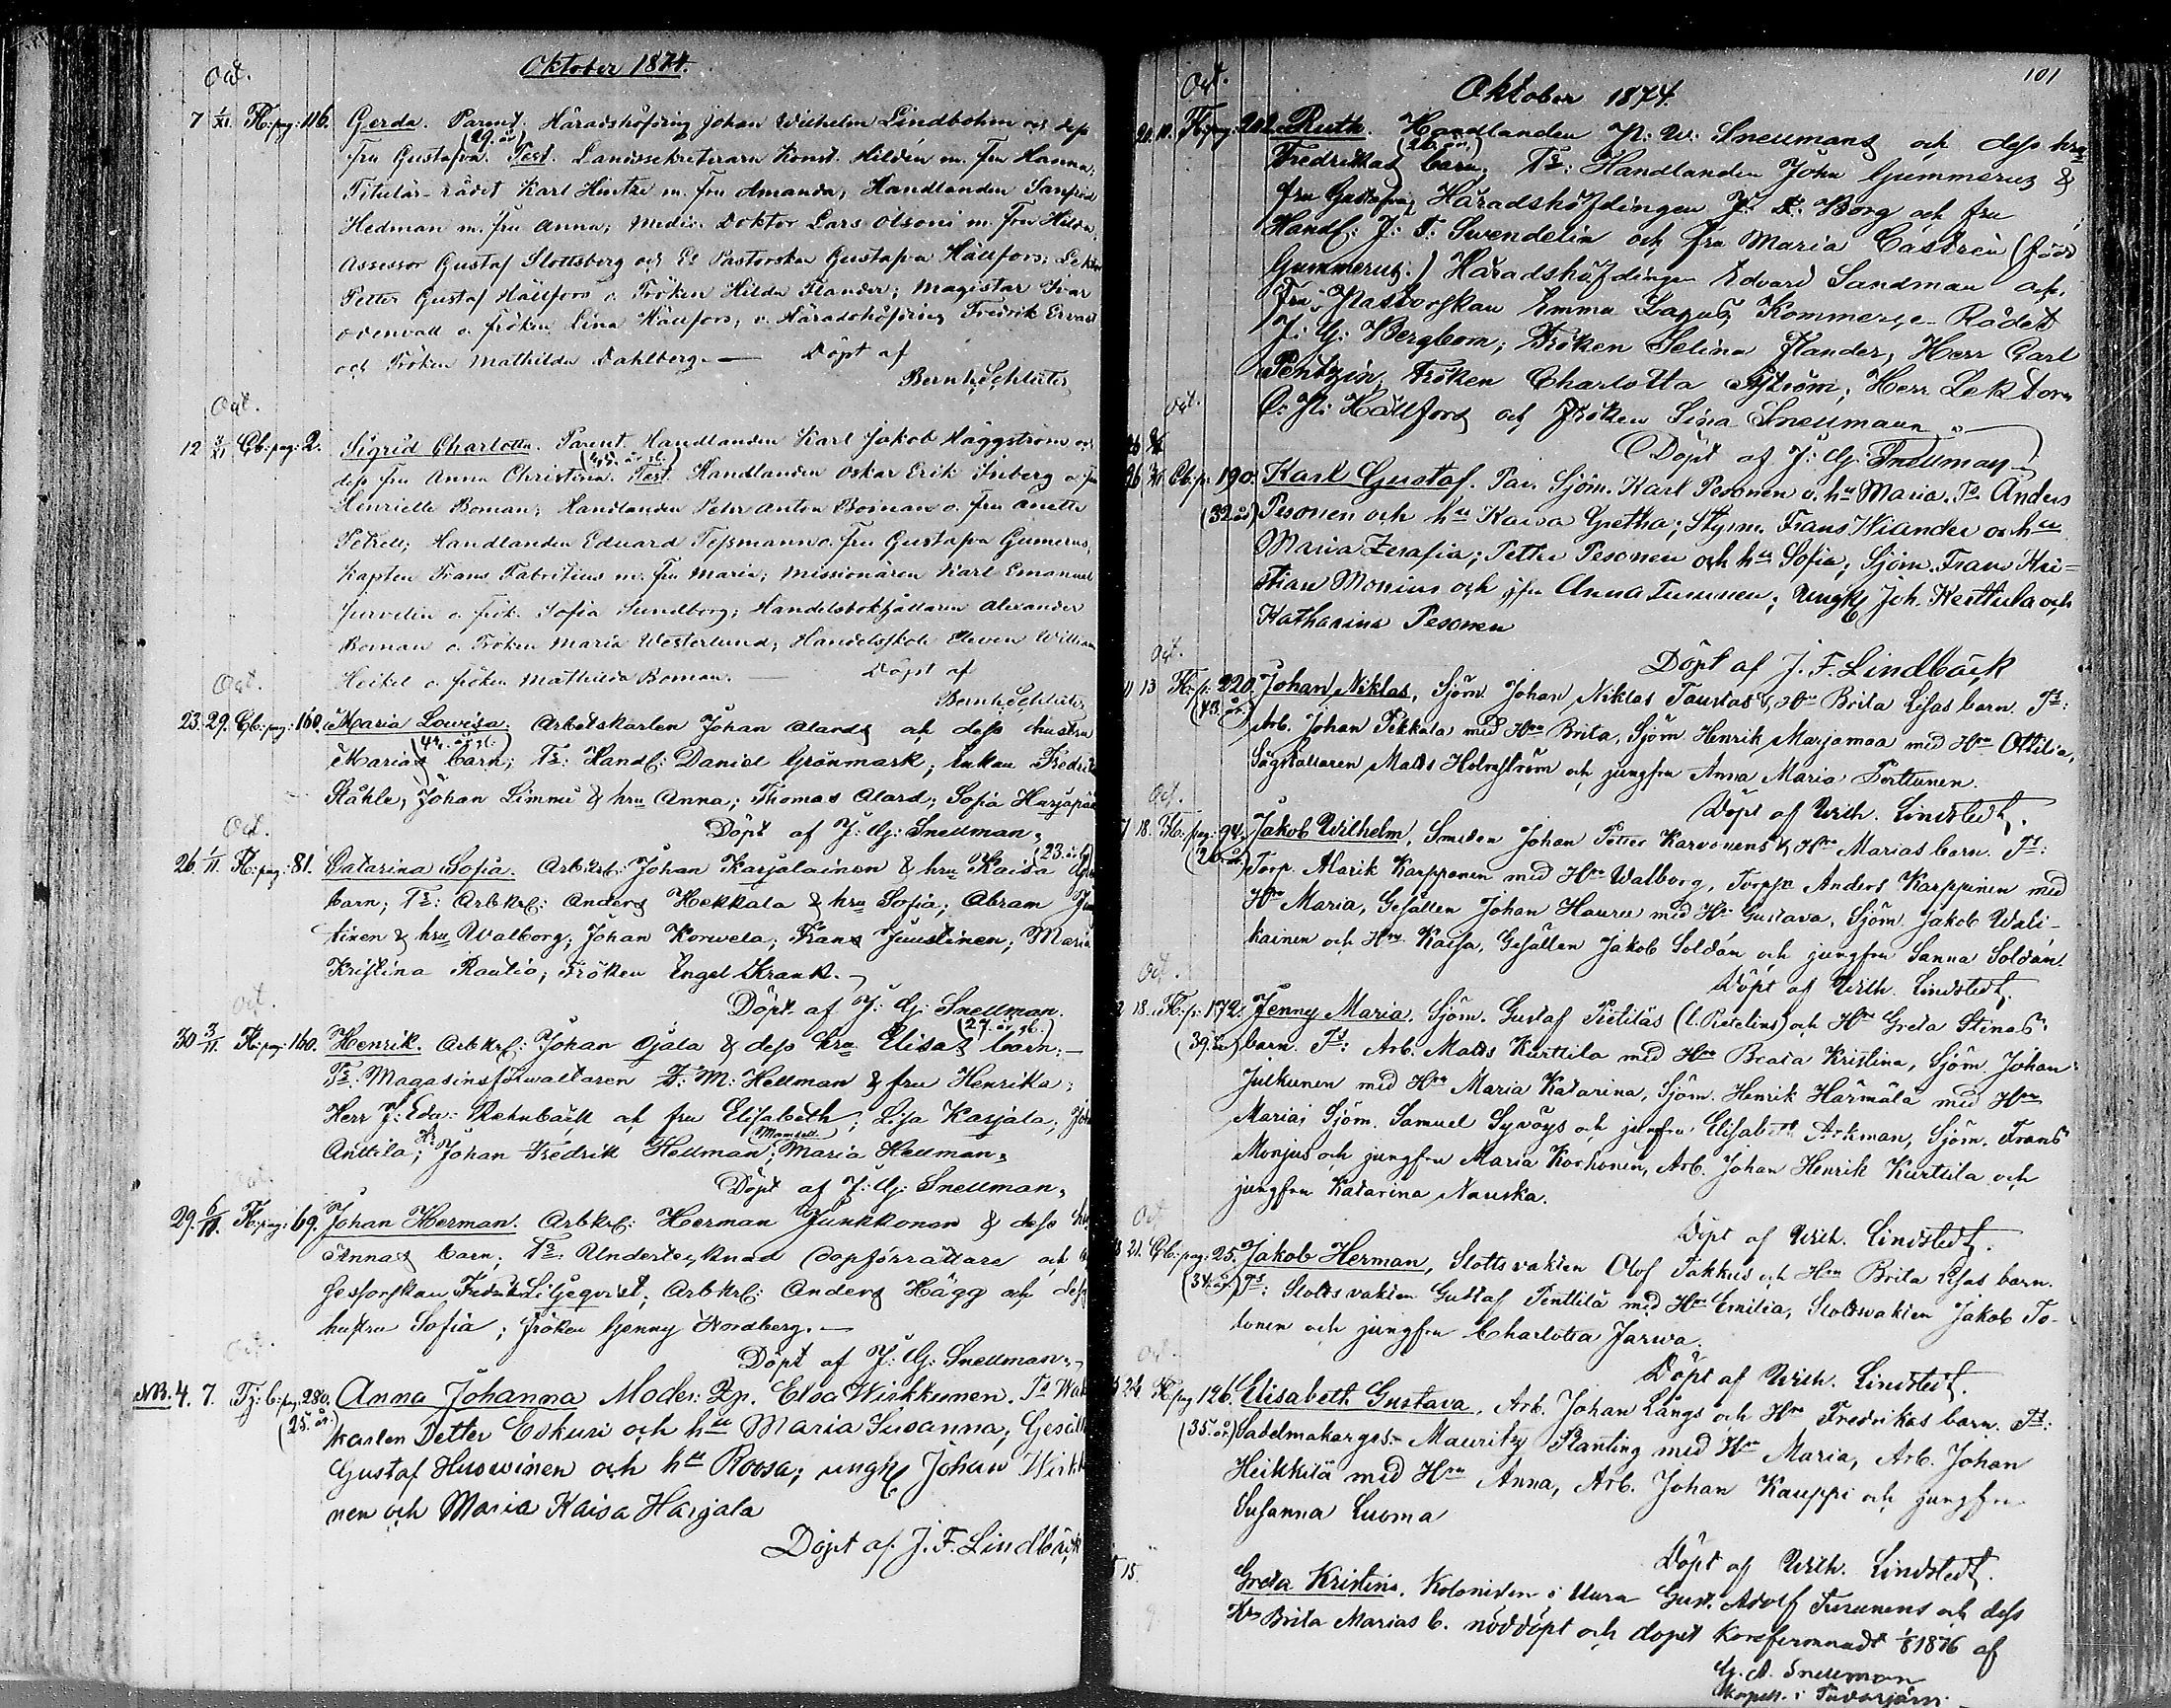 Oct.
Oktober 1874.
7 1/XI. Kl: pag: 116. Gerda. Parent. Häradshöfding Johan Wilhelm Lindbohm och dess
(29. år)
fru Gustafva. Test. Landssekreteraren Konst. Hildén m. fru Hanna,
Titulär-rådet Karl Hintze m. fru Amanda, Handlanden Sanfrid
Hedman m. fru Anna; Medic. Doktor Lars Olsoni m. fru Hilda,
Assessor Gustaf Slottsberg och Pastorskan Gustafva Hällfors; Lektor
Petter Gustaf Hällfors o. Fröken Hilda Flander; Magister Ivar
o. fröken Lina Hällfors, o. Häradshöfding Fredrik
och Fröken Mathilda Dahlberg. — Döpt af
Bernh. Schlüter
Oct.
12 Cb: pag: 2. Sigrid Charlotta. Parent. Handlanden Karl Jakob Häggström och
dess fru Anna Christina. Test. Handlanden Oskar Erik o. fru
Henriette Boman; Handlanden Peter Anton Boman o. fru Anette
Petrell; Handlanden Eduard Tessmann o. fru Gustafva Gumerus,
Kapten Frans Fabritius m. fru Maria; Missionären Karl Emanuel
Jurvelin o. frök. Sofia Sundborg; Handelsbokhållaren Alexander
Boman o. Fröken Maria Westerlund; Handelsskole Eleven William
Heikel o. fröken Mathilda Boman. — Döpt af
Oct.
Bernh. Schlüter
23. 29. Cb: pag: 160. Maria Lowisa. Arbetskarlen Johan Alards och dess hustru
Marias barn; Ts: Handl: Daniel Grönmark; Enkan Fredrika
Ståhle, Johan Limmi & hru Anna; Thomas Alard; Sofia
Döpt af J: G: Snellman.
Oct.
26. 1/11. Kl: pag: 81. Catarina Sofia. Arbkrl: Johan Karjalainen & hru Kaisa (23. år)
barn; Ts: Arbkrl: Anders Hekkala & hru Sofia; Abram
tinen & hru Walborg; Johan Korwela; Frans Juustinen; Maria
Kristina Rautio; Fröken Engel Krank.
Oct.
Döpt af J: G: Snellman.
(27. år gl.)
30 3/11. Kl: pag: 160. Henrik. Arbkrl: Johan Ojala & dess hru Elisas barn; —
Ts: Magasinsförwaltaren F: M: Hellman & fru Henrika;
Herr J: Edv: Rehnbäck och fru Elisabeth; Lisa Karjala;
Mamsell
Anttila; Hr Johan Fredrik Hellman; Maria Hellman.
Döpt af J: G: Snellman.
29. 6/11. Kl: pag: 69. Johan Herman. Arbkrl: Herman Junkkonen & dess
Annas barn; Ts: Undertecknad Dopförrättare och
Fredrika Liljeqvist; Arbkrl: Anders Hägg och dess
hustru Sofia; fröken Jenny Nordberg. —
Oct.
Döpt af J: G: Snellman.
NB. 4. 7. Tj: b: pag. 280. Anna Johanna Moder: Pig. Elsa Wirkkunen. Ts
(25. år.)
karlen Petter Eskuri och hu Maria Susanna; Gesäll
Gustaf Huswinen och hu Roosa; ungk Johan
nen och Maria Kaisa Harjala
Döpt af J. F. Lindbäck
101
Oct.
Oktober 1874.
Kl: pag. 202. Ruth. Handlanden H: W: Snellmans och dess hru
(26. år.)
Fredrikas barn. Ts: Handlanden John Gummerus &
fru Gustafva, Häradshöfdingen J: F: Borg och fru
Handl: J: F: Swendelin och fru Maria Castrén (född
Gummerus.) Häradshöfdingen Edvard Sandman och
Fru Pastorskan Emma Lagus; Kommerse-Rådet
J: G: Bergbom; Fröken Selina Flander, Herr Carl
Pentzin, Fröken Charlotta Nyström; Herr Lektorn
Oct.
P: G: Hällfors och Fröken Lina Snellman
Döpt af J: G: Snellman
26 Cb: p: 190. Karl Gustaf. Par. Sjöm. Karl Pesonen o. hu Maria. Ts Anders
(32 år) Pesonen och hu Kaisa Gretha; Styrm. Frans Wiander och hu
Maria Zerafia; Petter Pesonen och hu Sofia; Sjöm. Frans Kri-
stian Monius och jfru Anna Tuunen; Ungk Joh. Kerttula och
Katharina Pesonen
Oct.
Döpt af J. F. Lindbäck
13 Kl: p: 220. Johan Niklas, Sjöm. Johan Niklas Taustas & Hru Brita Lisas barn. Ts:
(43. år.) Arb. Johan Pekkala med Hru Brita, Sjöm. Henrik Marjamaa med Hru Ottilia,
Sågställaren Matts Holmström och jungfru Anna Maria Torttunen.
Oct.
Döpt af Wilh. Lindstedt.
18. Kl: pag: 94. Jakob Wilhelm, Smeden Johan Petter Karvonens & Hru Marias barn. Ts:
(26. år.) Torp. Alarik Karpponen med Hru Walborg, Torpr. Anders Karppinen med
Hru Maria, Gesällen Johan Hauru med Hru Gustava, Sjöm. Jakob Wali-
kainen och Hru Kaisa, Gesällen Jakob Soldan och jungfru Sanna Soldan.
Oct.
Döpt af Wilh. Lindstedt.
18. Kl: p: 172. Jenny Maria. Sjöm. Gustaf Pietiläs (l. Pietelius) och Hru Greta Stinas
(39. år.) barn. Ts: Arb. Matts Kurttila med Hru Beata Kristina, Sjöm. Johan
Julkunen med Hru Maria Katarina, Sjöm. Henrik Härmälä med Hru
Maria; Sjöm. Samuel Syväys och jungfru Elisabeth Arkman, Sjöm. Frans
Monjus och jungfru Maria Korhonen, Arb. Johan Henrik Kurttila och
jungfru Katarina Nauska.
Oct.
Döpt af Wilh. Lindstedt.
21. Cb: pag: 25. Jakob Herman, Slottsvakten Olof Takkus och Hru Brita Lisas barn.
(34. år.) Ts: Slottsvakten Gustaf Penttilä med Hru Emilia, Slottsvakten Jakob To-
lonen och jungfru Charlotta Jarwa.
Oct.
Döpt af Wilh. Lindstedt.
24 Kl: pag 126. Elisabeth Gustava. Arb. Johan Långs och Hru Fredrikas barn. Ts:
(35. år.) Sadelmakarges. Mauritz Planting med Hru Maria, Arb. Johan
Heikkilä med Hru Anna, Arb. Johan Kauppi och jungfru
Susanna Luoma
Döpt af Wilh. Lindstedt.
15. Greta Kristina. Kolonisten i Uura Gust. Adolf Turunens och dess
Hru Brita Marias b. nöddöpt och dopet konfirmradt 1/8 1876 af
G. A. Snellman
Kapell. i Taivarjärvi